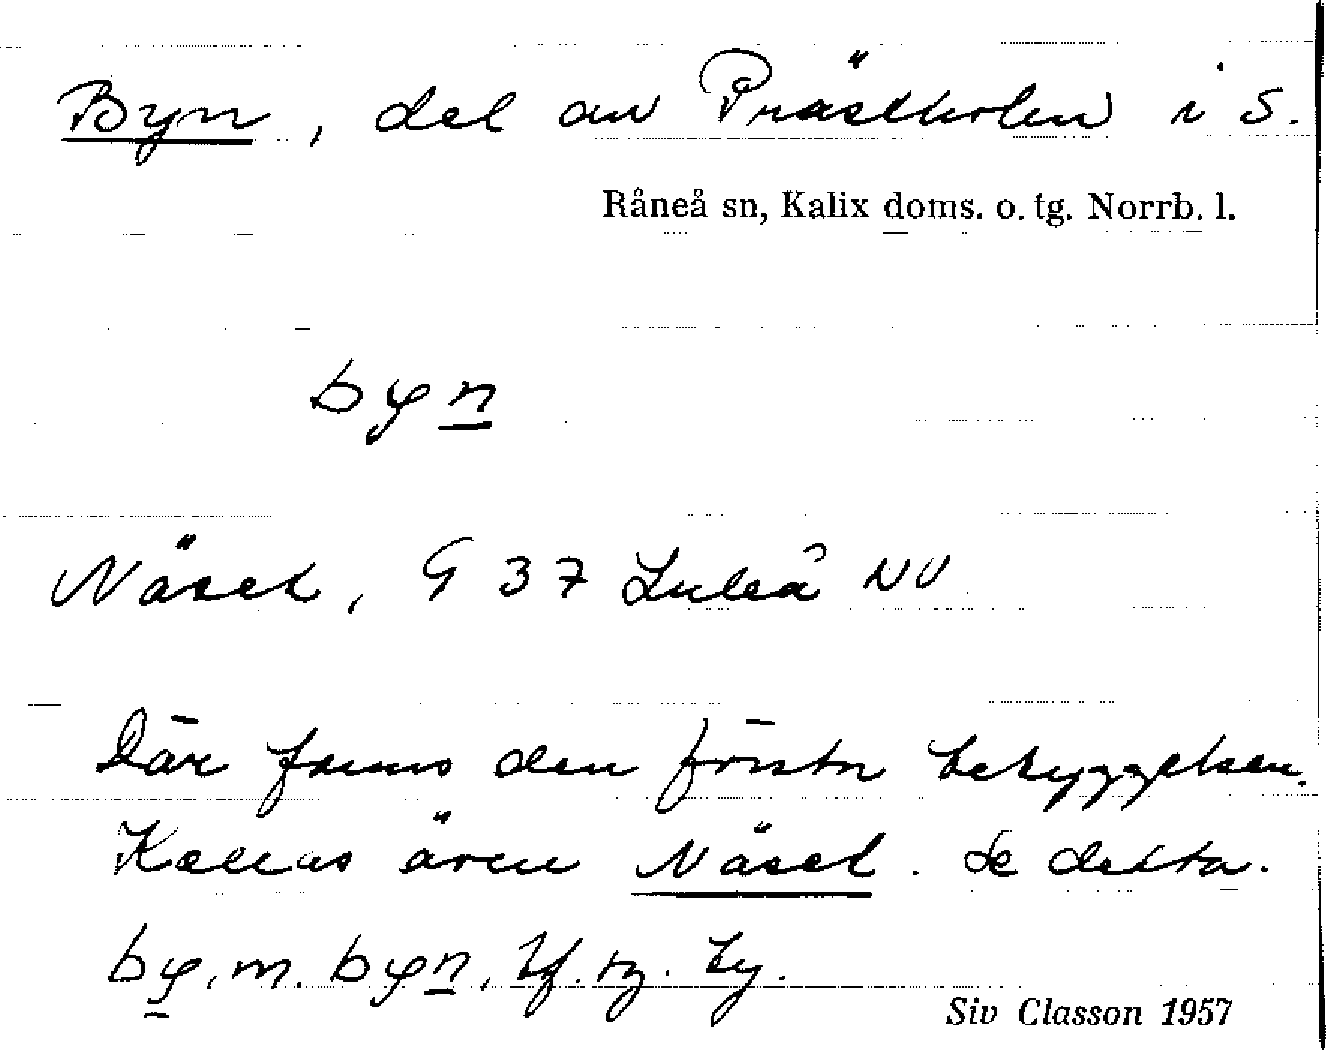 Byn, del av Prästholm i S.
Råneå sn, Kalix doms. o. tg. Norrb. l.
byn
Näset, G 37 Luleå NV
Där fanns den första bebyggelsen.
Kallas även Näset. Se detta.
by, m. byn, bf. sg. by.
Siv Classon 1957